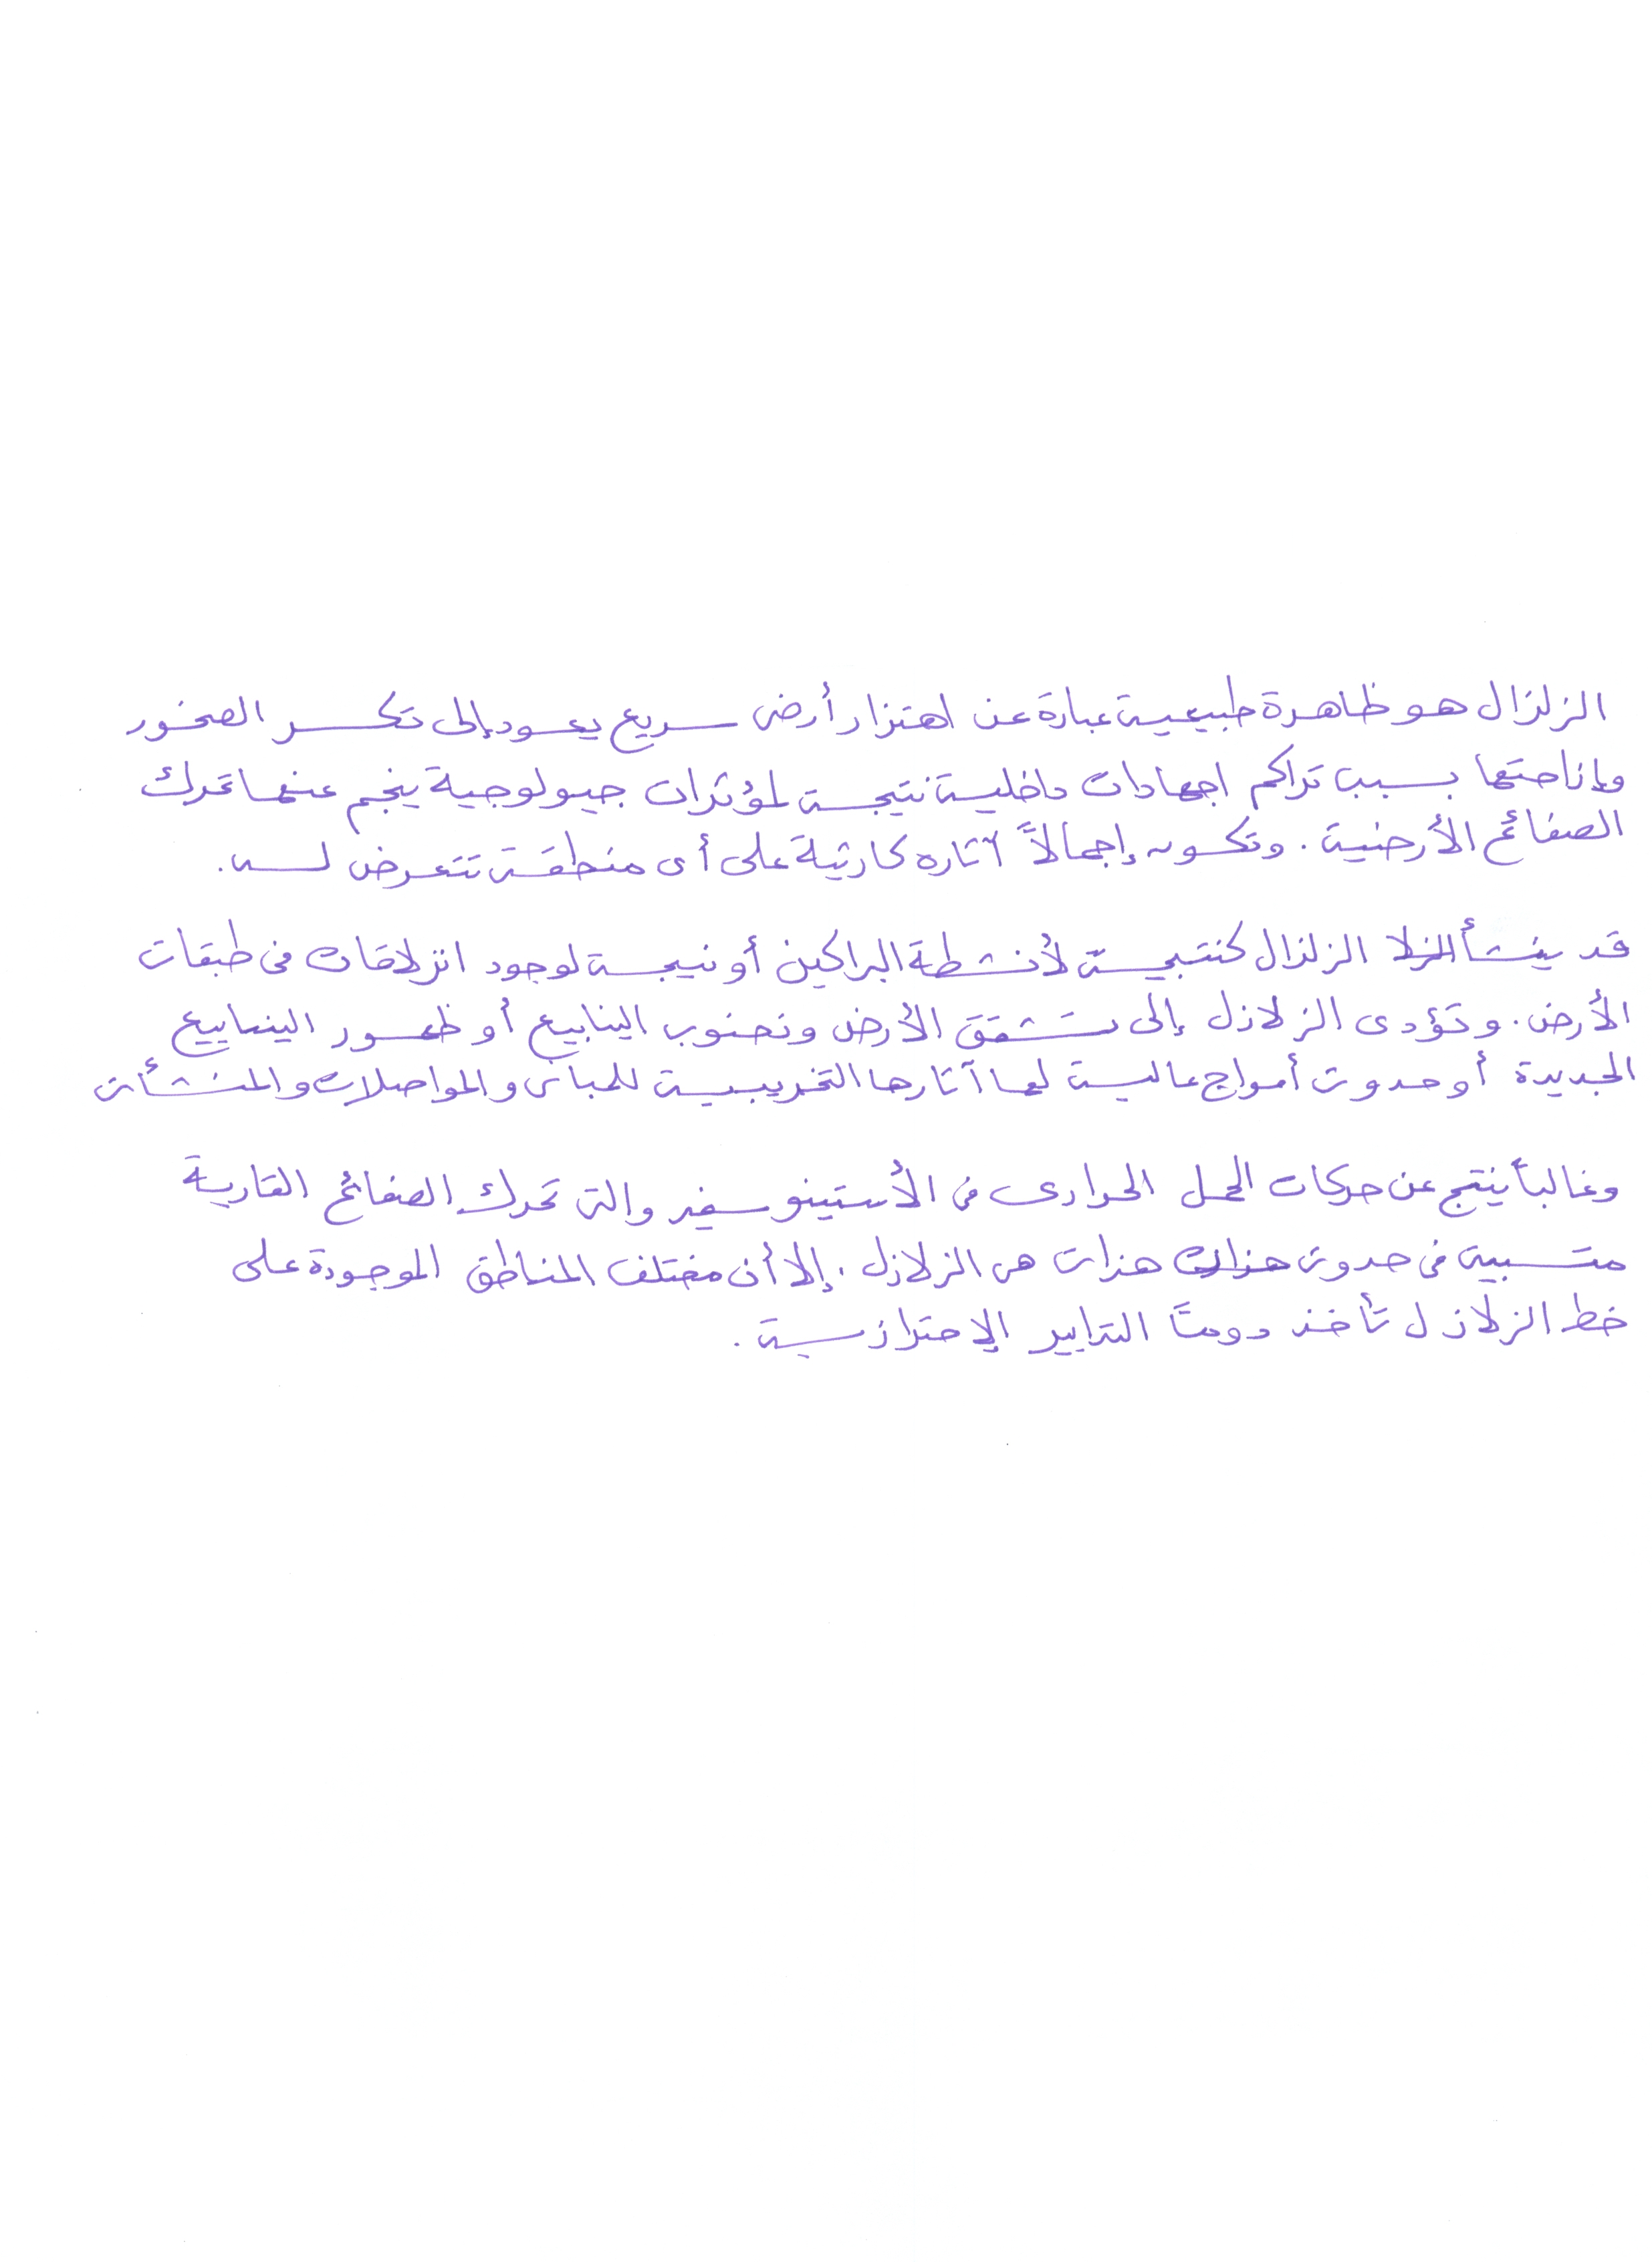 الزلزال هو ظاهرة طبيعية عبارة عن اهتزاز أرضى سريع يعود إلى تكسر الصخور
وإزاحتها بسبب تراكم اجهادات داخلية نتيجة لمؤثرات جيولوجية ينجم عنها تحرك
الصفائح الأرضية . وتكون إجمالاً آثاره كارثية على أى منطقة تتعرض له .
قد ينشأ الزلا الزلزال كنتيجة لأنشطة البراكين أو نتيجة لوجود انزلاقات فى طبقات
الأرض . وتؤدى الزلازل إلى تشقق الأرض ونضوب الينابيع أو ظهور الينابيع
الجديدة أو حدوث أمواج عالية لها آثارها التخريبية للمبانى والمواصلات والمنشأت
وغالباً ينتج عن حركات الحمل الحرارى فى الأستينوسفير والتى تحرك الصفائح القارية
متسببة فى حدوث هزات هزات هى الزلازل . إلا أن مختلف المناطق الموجودة على
خط الزلازل تأخذ دومًا التدابير الإحترازية .